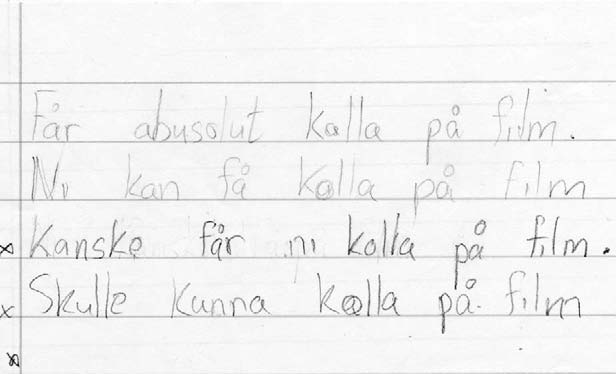 Får abusolut kolla på film.
Ni kan få kolla på film
x Kanske får ni kolla på film.
x Skulle kunna kolla på film
x